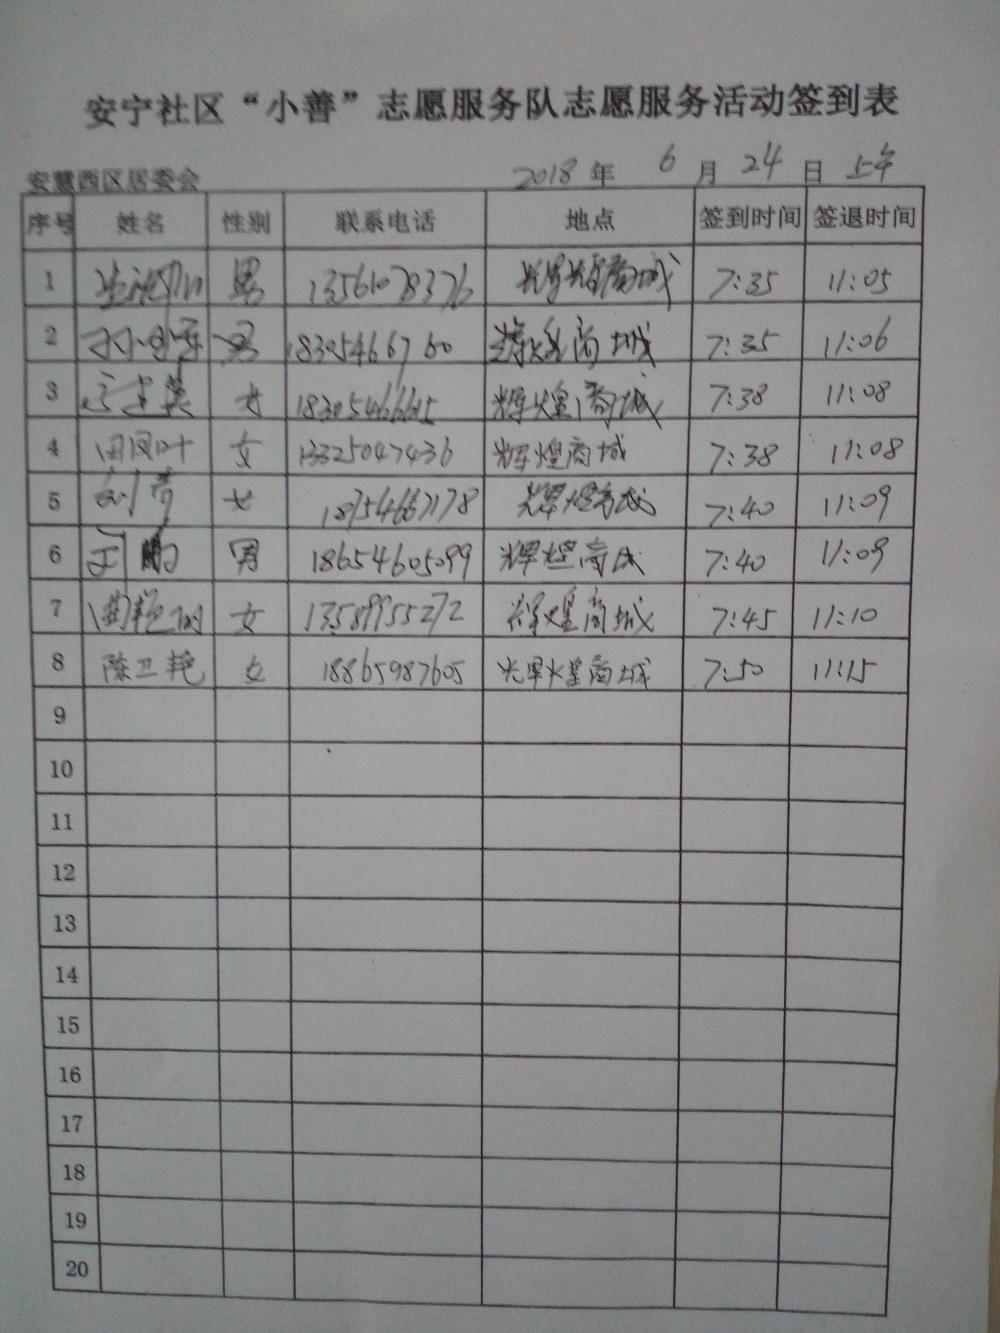 安宁社区“小善”志愿服务队志愿服务活动签到表
安慧西区居委会 2018 年 6 月 24 日 上午
序号 姓名 性别 联系电话 地点 签到时间 签退时间
1 男 13561078376 辉煌商城 7:35 11:05
2 男 18305466760 辉煌商城 7:35 11:06
3 女 18305466615 辉煌商城 7:38 11:08
4 田凤叶 女 13325047436 辉煌商城 7:38 11:08
5 刘青 女 18754667178 辉煌商城 7:40 11:09
6 王鹏 男 18654605099 辉煌商城 7:40 11:09
7 女 13589955272 辉煌商城 7:45 11:10
8 陈卫艳 女 18865987605 辉煌商城 7:50 11:15
9
10
11
12
13
14
15
16
17
18
19
20